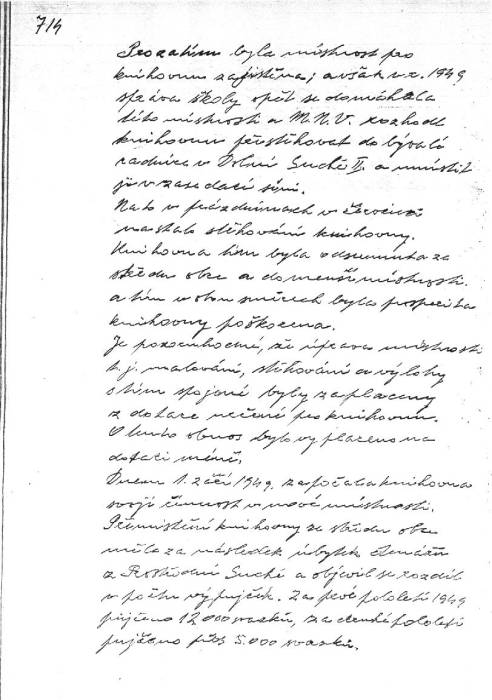 714
Prozatím byla místnost pro
knihovnu zajištěna; avšak v r. 1949
správa školy opět se domáhala
této místnosti a M.N.V. rozhodl
knihovnu přestěhovat do bývalé
radnice v Dolní Suché II. a umístit
ji v zasedací síni.
Nato v prázdninách v červenci
nastalo stěhování knihovny.
Knihovna tím byla odsunuta ze
středu obce a do menší místnosti.
a tím v obou směrech byla prosperita
knihovny poškozena.
Je pozoruhodné, že úprava místnosti
t.j. malování, stěhování a výlohy
s tím spojené byly zaplaceny
z dotace určené pro knihovnu.
O tento obnos bylo vyplaceno na
dotaci méně.
Dnem 1. září 1949. započala knihovna
svoji činnost v nové místnosti.
Přemístění knihovny ze středu obce
mělo za následek úbytek čtenářů
z Prostřední Suché a objevil se rozdíl
v počtu výpujček. Za prvé pololetí 1949
půjčeno 12 000 svazků, za druhé pololetí
pujčeno přes 5.000 svazků.